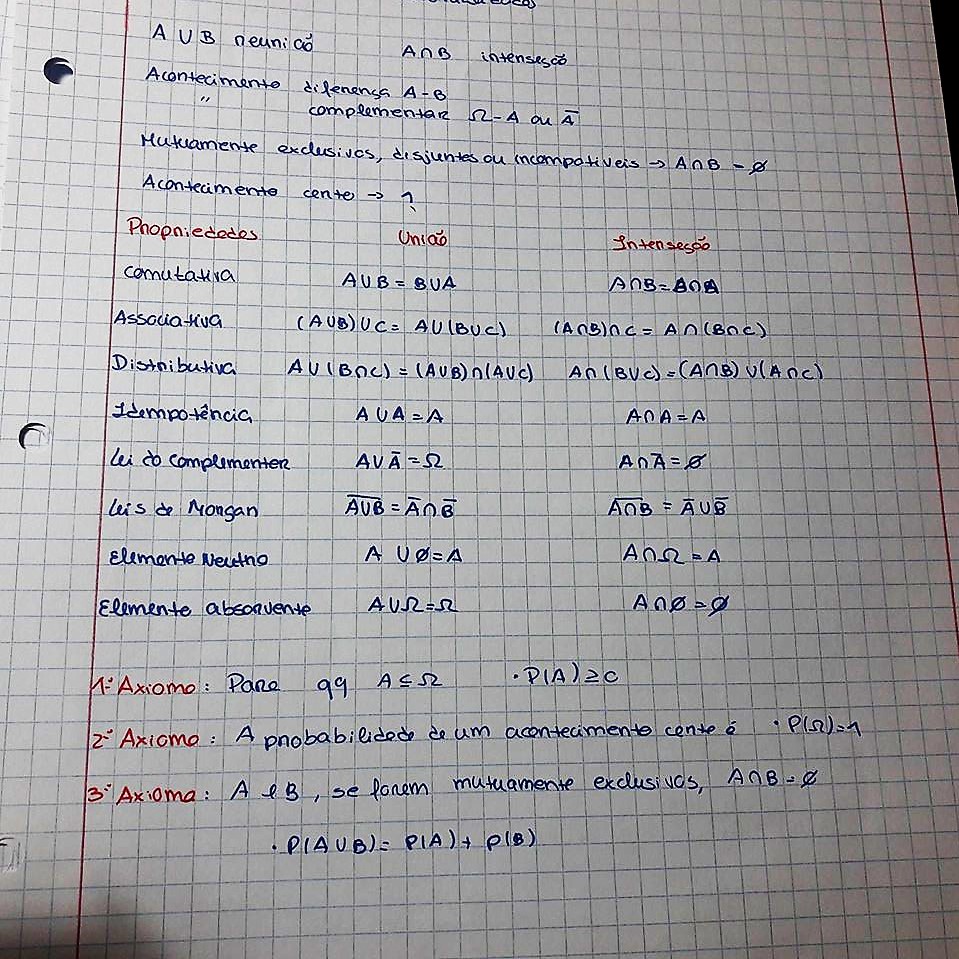 A ∪ B reunião A∩B interseção
Acontecimento diferença A-B
" complementar Ω-A ou A̅
Mutuamente exclusivos, disjuntos ou incompatíveis → A∩B = ∅
Acontecimento certo → 1
Propriedades União Interseção
Comutativa A∪B = B∪A A∩B = B∩A
Associativa (A∪B)∪C = A∪(B∪C) (A∩B)∩C = A∩(B∩C)
Distributiva A∪(B∩C) = (A∪B)∩(A∪C) A∩(B∪C) = (A∩B)∪(A∩C)
Idempotência A∪A = A A∩A = A
Lei do complementar A∪A̅ = Ω A∩A̅ = ∅
Leis de Morgan A̅∪̅B̅ = A̅∩B̅ A̅∩̅B̅ = A̅∪B̅
Elemento Neutro A ∪∅ = A A∩Ω = A
Elemento absorvente A∪Ω = Ω A∩∅ = ∅
1º Axioma: Para qq A⊆Ω · P(A) ≥ 0
2º Axioma: A probabilidade de um acontecimento certo é · P(Ω) = 1
3º Axioma: A e B, se forem mutuamente exclusivos, A∩B = ∅
· P(A∪B) = P(A) + P(B)